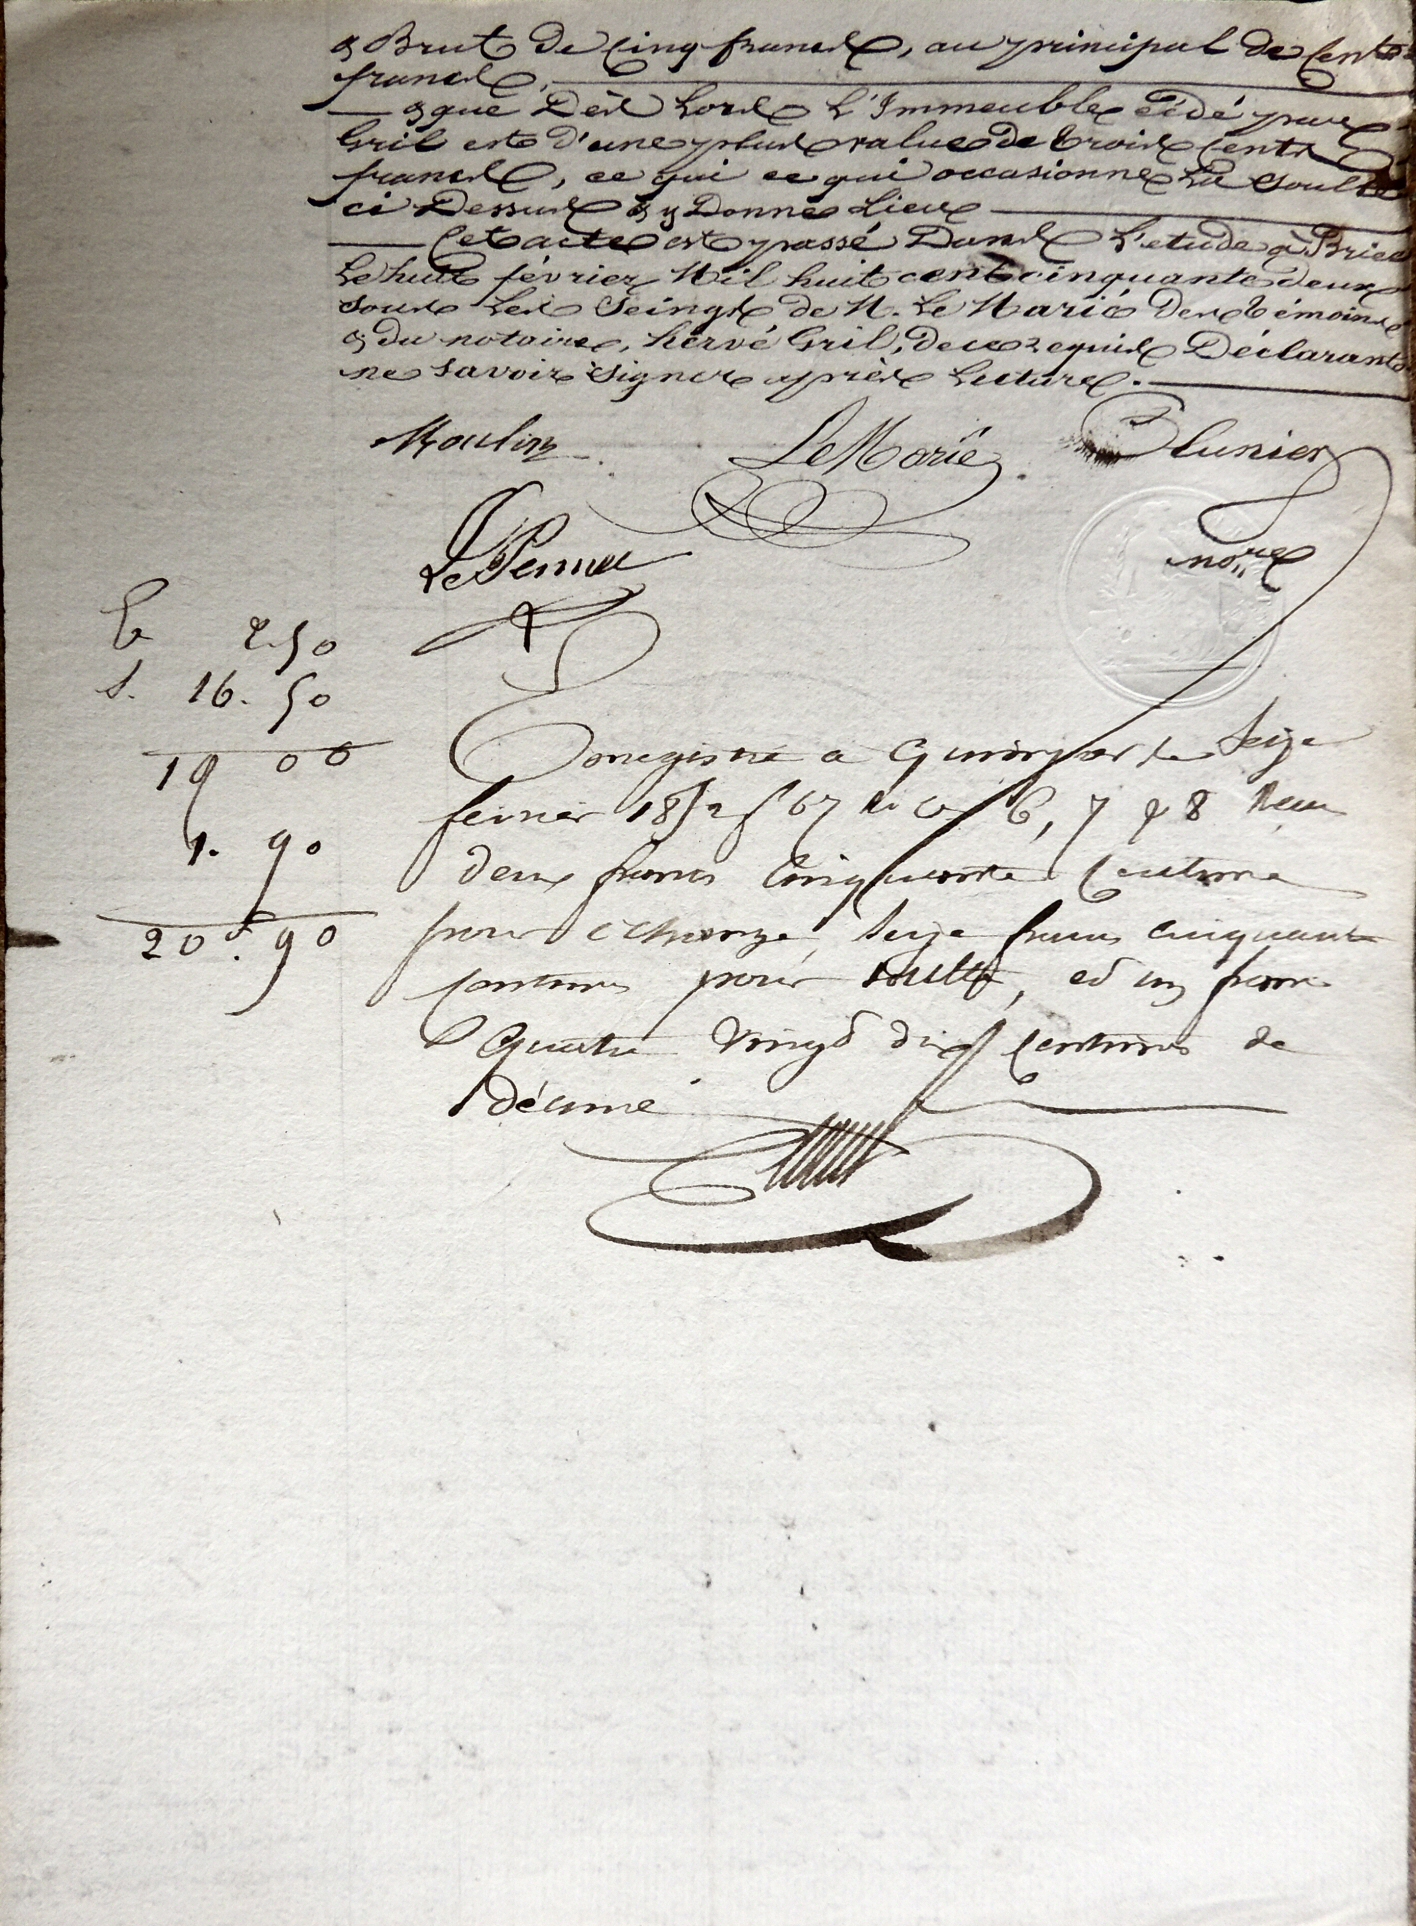 & Brut de Cinq francs, au principal de Cent
francs,
& que Dès lors l'Immeuble cédé par
Gril est d'une plus value de trois Cents
francs, ce qui ce qui occasionne la soulte
ci Dessus & y Donne lieu
Cet acte est passé Dans l'etude à Briec
le huit février Mil huit cent cinquante deux
sous les Seings de M. Le Marié Des témoins
& du notaire, hervé Gril, de ce requis Déclarant
ne savoir signer après lecture.
Moulin
Le Marié
Plunier
nore
Le Pennec
E 2.50
S. 16.50
19 00
1. 90
20f. 90
Enregistré a Quimper le Seize
fevrier 1852 fo 67 Ro Cs 6, 7 & 8 Reçu
deux francs Cinquante Centimes
pour échange, Seize francs cinquante
Centimes pour soulte, et un franc
quatre vingt dix Centimes de
décime